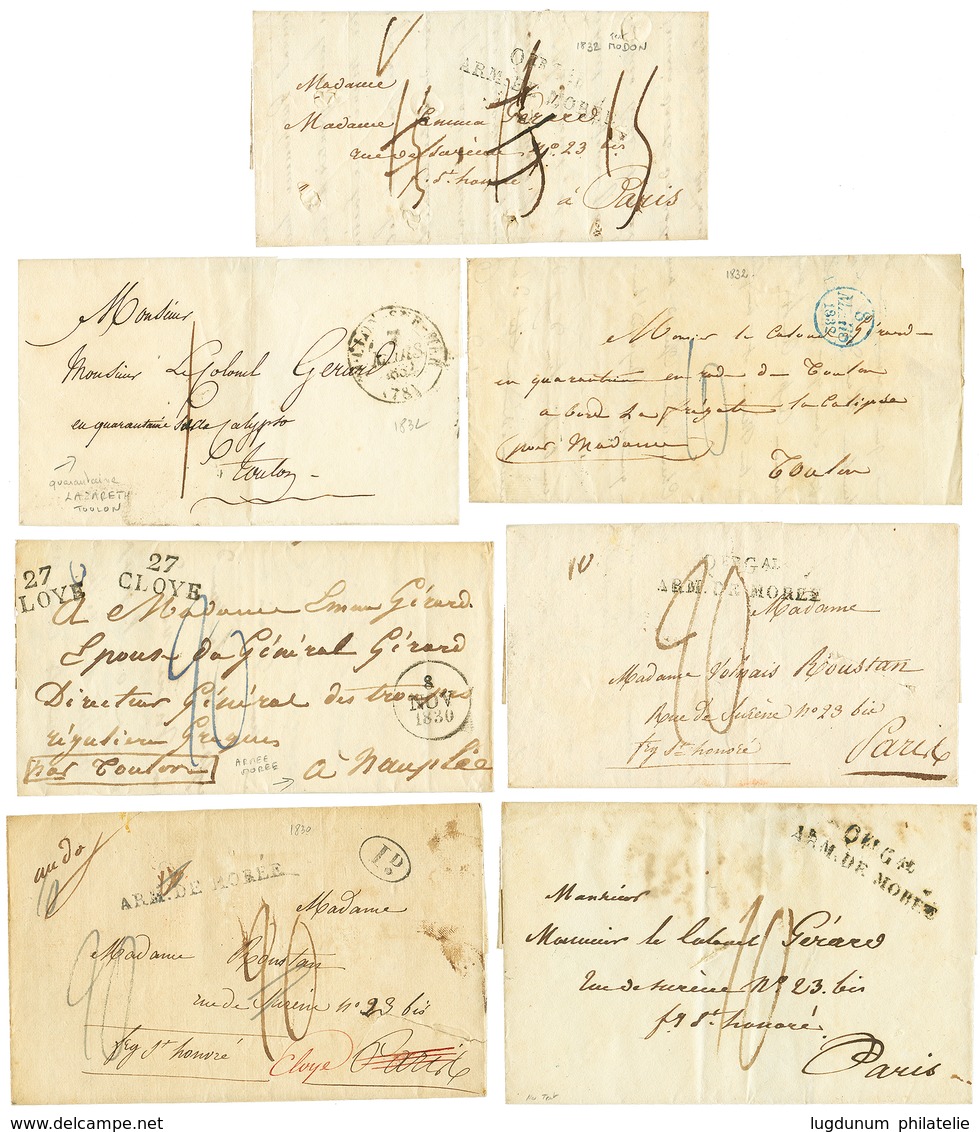 1832 MODON
ARM. DE MORÉE
Madame
Madame Emma Gérard
rue de Surène N.º 23 bis
f. St honoré
à Paris
Monsieur
Monsieur Le Colonel Gérard
en quarantaine sur la Calypso
Toulon
MARS
(78)
1832
quarantaine
LAZARETH
TOULON
1832
8
1832
Monsieur le Colonel Gérard
en quarantaine en rade de Toulon
a bord La frégate la Calipso
pour Madame
Toulon
27
CLOYE
27
CLOYE
A Madame Emma Gérard
Epouse du Général Gérard
Directeur Général des troupes
régulières Greques
par Toulon
à Nauplée
8
NOV
1830
ARMÉE
MORÉE
10
ARM. DE MORÉE
Madame
Madame Roustan
Rue de Surène nº 23 bis
fbg St honoré
Paris
1830
1D
ARM. DE MORÉE
Madame
Madame Roustan
rue de Surène nº 23 bis
fbg St honoré
Cloye Paris
ARM. DE MORÉE
Monsieur
Monsieur le Colonel Gérard
Rue de surène Nº 23. bis
fg St honoré
Paris
www.delcampe.net
lugdunum philatelie